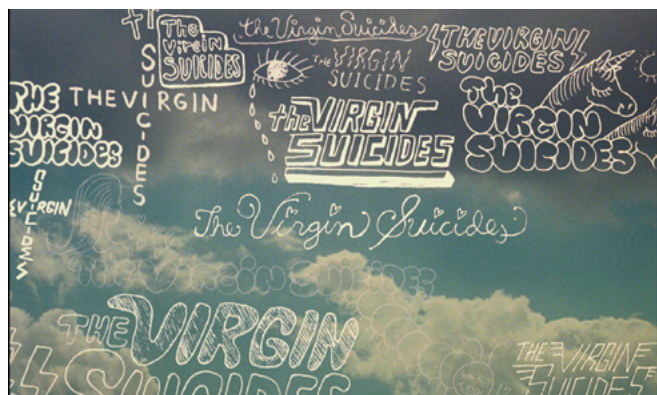 The
Virgin
SUICIDES
the Virgin Suicides
THE VIRGIN
SUICIDES
THE VIRGIN
SUICIDES
THE
VIRGIN
SUICIDES
THE VIRGIN
SUICIDES
the VIRGIN
SUICIDES
The
VIRGIN
SUICIDES
VIRGIN
SUICIDES
The Virgin Suicides
THE VIRGIN SUICIDES
THE VIRGIN
SUICIDES
THE VIRGIN
SUICIDES